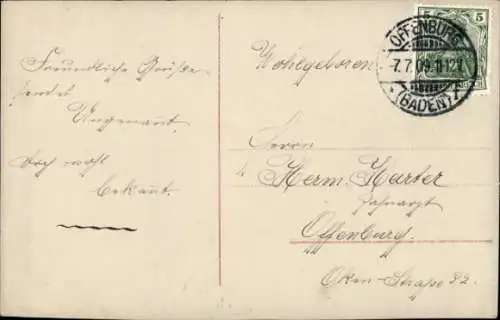 Freundliche Grüße
sendet
Ungenannt
doch wohl
bekannt.
Wohlgeboren
Herrn
Herm. Harter
Zahnarzt
Offenburg.
Oken-Straße 22.
OFFENBURG
7.7.09.11-12V.
(BADEN)
5 5